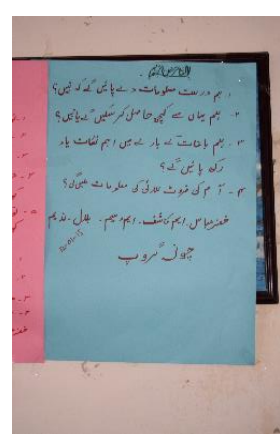 ۱۔ ہم درست معلومات دے پائیں گے کہ نہیں؟
۲۔ ہم یہاں سے کچھ حاصل کر سکیں گے یا نہیں؟
۳۔ ہم باغات کے بارے میں اہم نکات یاد
رکھ پائیں گے؟
۴۔ آم کی فروٹ فلائی کی معلومات ملیں گی؟
غضنفر عباس۔ ایم کاشف۔ ایم وسیم۔ بلال۔ ندیم
گروپ